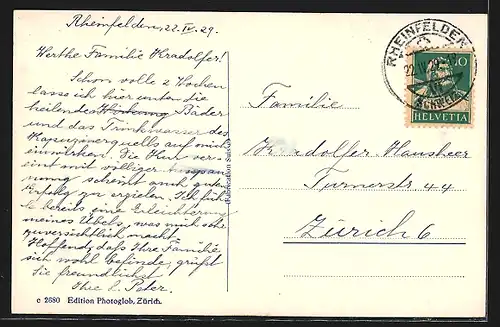 Rheinfelden, 22. IV. 29.
Werthe Familie Kradolfer!
Schon volle 2 Wochen
lasse ich hier unten die
heilenden Wirkung Bäder
und das Trinkwasser des
Kapuzinerquells auf mich
einwirken. Die Kur ver-
eint mit völliger Ausspan-
nung scheint auch guten
Erfolg zu erzielen. Ich fühle
bereits eine Erleichterung
meines Übels, was mich sehr
zuversichtlich macht.
Hoffend, dass Ihre Familie
sich wohl befinde, grüßt
Sie freundlichst
Ihre Peter.
c 2680 Edition Photoglob, Zürich.
RHEINFELDEN
22.IV.29
(SCHWEIZ)
10
HELVETIA
Familie
Kradolfer Hausheer
Turnerstr 44
Zürich 6